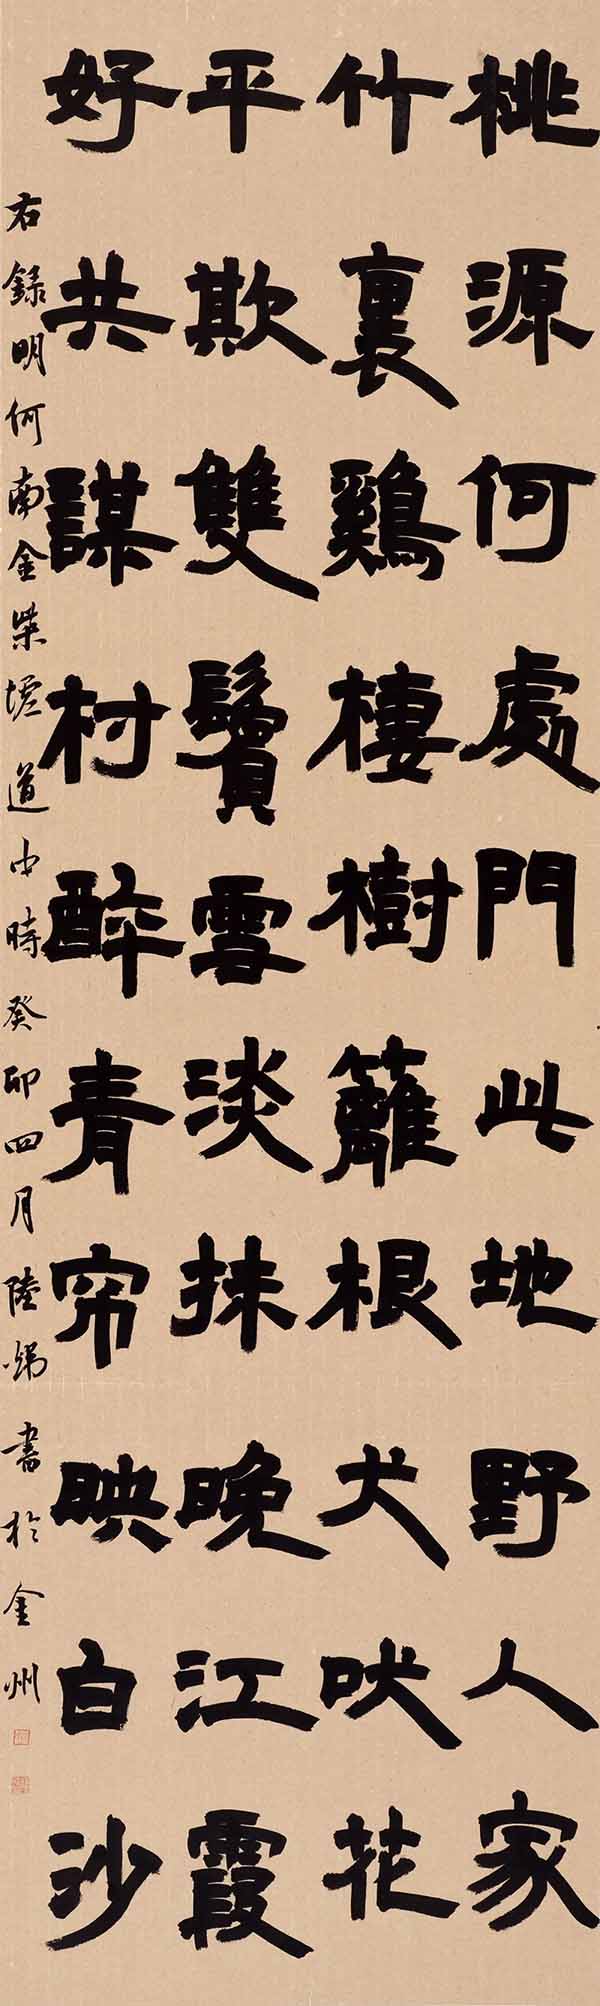 桃源何處門此地野人家
竹裏鷄棲樹籬根犬吠花
平欺雙鬢雪淡抹晚江霞
好共謀村醉青帘映白沙
右録明何南金柴墟道中時癸卯四月陸娣書於金州